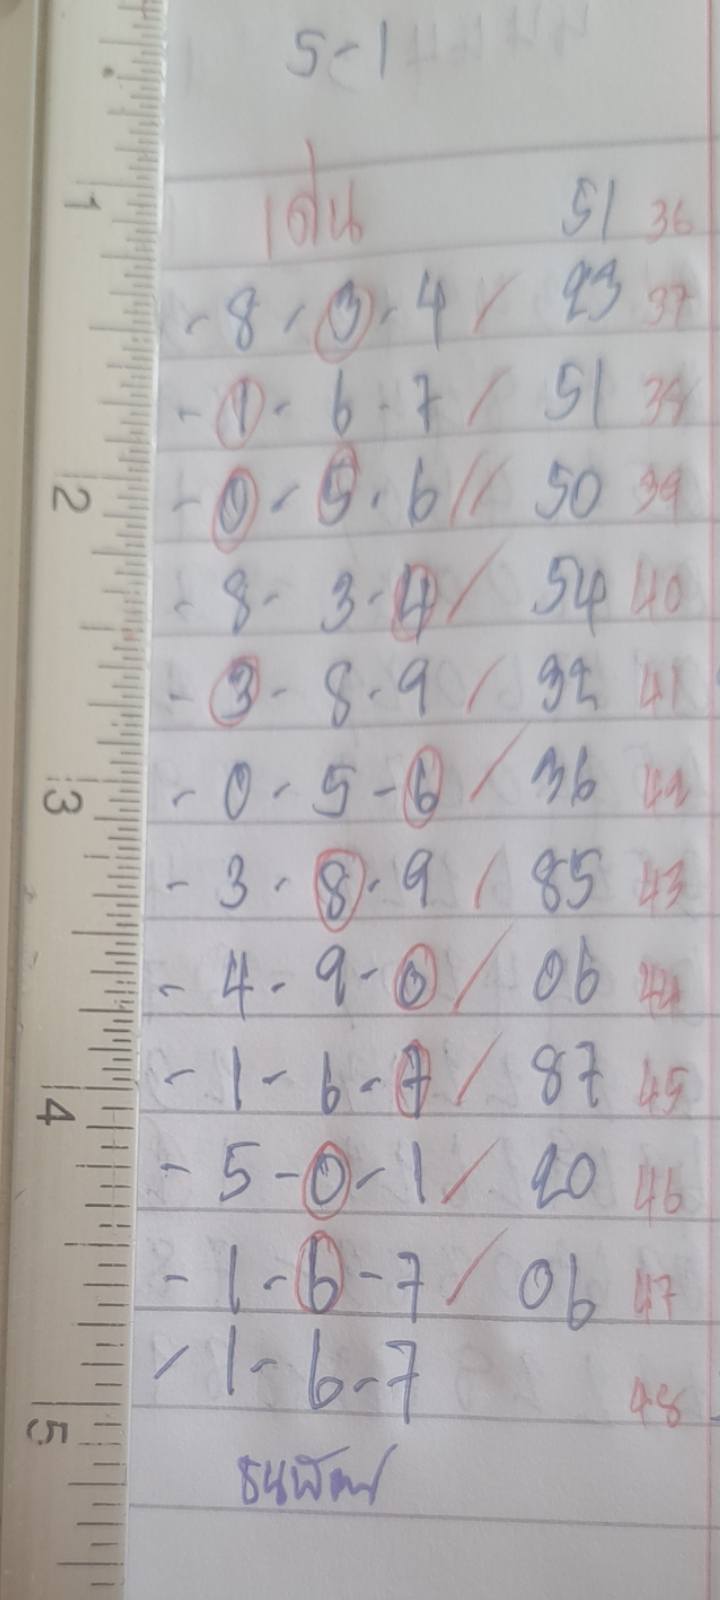 5-1
เด่น 51 36
- 8 - 3 - 4 / 23 37
- 1 - 6 - 7 / 51 38
- 0 - 5 - 6 // 50 39
- 8 - 3 - 4 / 54 40
- 3 - 8 - 9 / 32 41
- 0 - 5 - 6 / 36 42
- 3 - 8 - 9 / 85 43
- 4 - 9 - 0 / 06 44
- 1 - 6 - 7 / 87 45
- 5 - 0 - 1 / 20 46
- 1 - 6 - 7 / 06 47
- 1 - 6 - 7 48
ธนพัฒน์
1
2
3
4
5